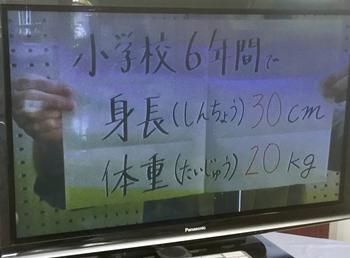 小学校6年間で
身長(しんちょう)30cm
体重(たいじゅう)20kg
Panasonic